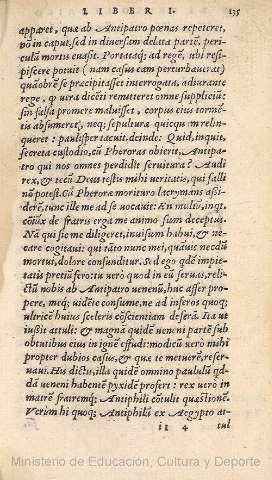 LIBER I. 135
apparet, quæ ab Antipatro pœnas repeteret,
nō in caput, sed in diuersam delata partē, peri-
culū mortis euasit. Portataq; ad regē, vbi resi-
piscere potuit (nam casus eam perturbauerat)
quāobrē se præcipitasset interrogata, adiurante
rege, qᷓ uira dicēti remitteret omne suppliciū:
sin falsa promere maluisset, corpus eius tormē-
tis absumeret, neq; sepultura quicquā relin-
queret: paulisper tacuit. deinde: Quid, inquit,
secreta custodio, cū Pheroras obierit, Antipa-
tro qui nos omnes perdidit seruitura? Audi
rex, & tecū Deus testis mihi ueritatis, qui falli
nō potest. Cū Pherore morituro lacrymans assi-
derē, tunc ille me ad se uocauit: En multū, inqt,
cōiux de fratris erga me animo sum deceptus.
Nā qui sic me diligeret, inuisum habui, & ne-
care cogitaui: qui tāto nunc mei, quāuis necdū
mortui, dolore consunditur. Sed ego qdē impie-
tatis pretiū fero: tu verò quod in eū seruas, reli-
ctū nobis ab Antipatro uenenū, huc affer pro-
pere, meq; uidēte consume, ne ad inferos quoq;
ultricē huius sceleris cōscientiam deferā. Ita ut
iussit attuli: & magnā quidē ueneni partē sub
obtutibus eius in ignē effudi: modicū verò mihi
propter dubios casus, & quæ te metuerē, reser-
uaui. His dictis, illa quidē omnino paululū qd-
dā ueneni habentē pyxidē profert: rex verò in
matrē fratremq; Antiphili cōtulit quæstionē.
Verùm hi quoq; Antiphilū ex Aegypto at-
ii 4 tul
Ministerio de Educación, Cultura y Deporte